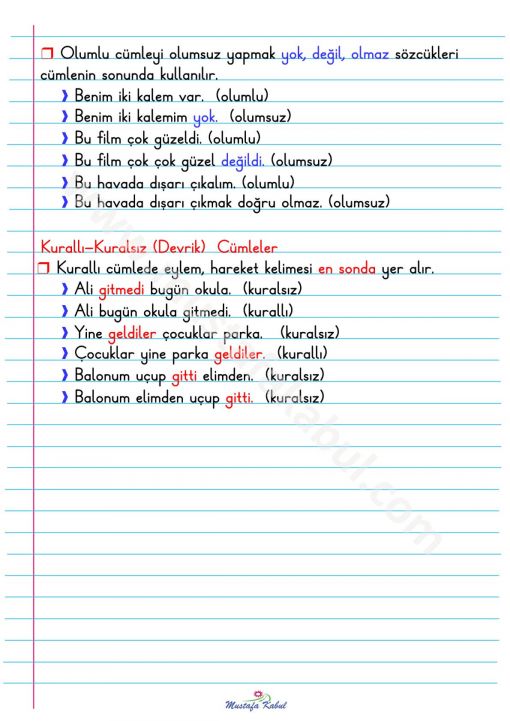 ❒ Olumlu cümleyi olumsuz yapmak yok, değil, olmaz sözcükleri
cümlenin sonunda kullanılır.
❫ Benim iki kalem var. (olumlu)
❫ Benim iki kalemim yok. (olumsuz)
❫ Bu film çok güzeldi. (olumlu)
❫ Bu film çok çok güzel değildi. (olumsuz)
❫ Bu havada dışarı çıkalım. (olumlu)
❫ Bu havada dışarı çıkmak doğru olmaz. (olumsuz)
Kurallı–Kuralsız (Devrik) Cümleler
❒ Kurallı cümlede eylem, hareket kelimesi en sonda yer alır.
❫ Ali gitmedi bugün okula. (kuralsız)
❫ Ali bugün okula gitmedi. (kurallı)
❫ Yine geldiler çocuklar parka. (kuralsız)
❫ Çocuklar yine parka geldiler. (kurallı)
❫ Balonum uçup gitti elimden. (kuralsız)
❫ Balonum elimden uçup gitti. (kuralsız)
www.mustafakabul.com
Mustafa Kabul